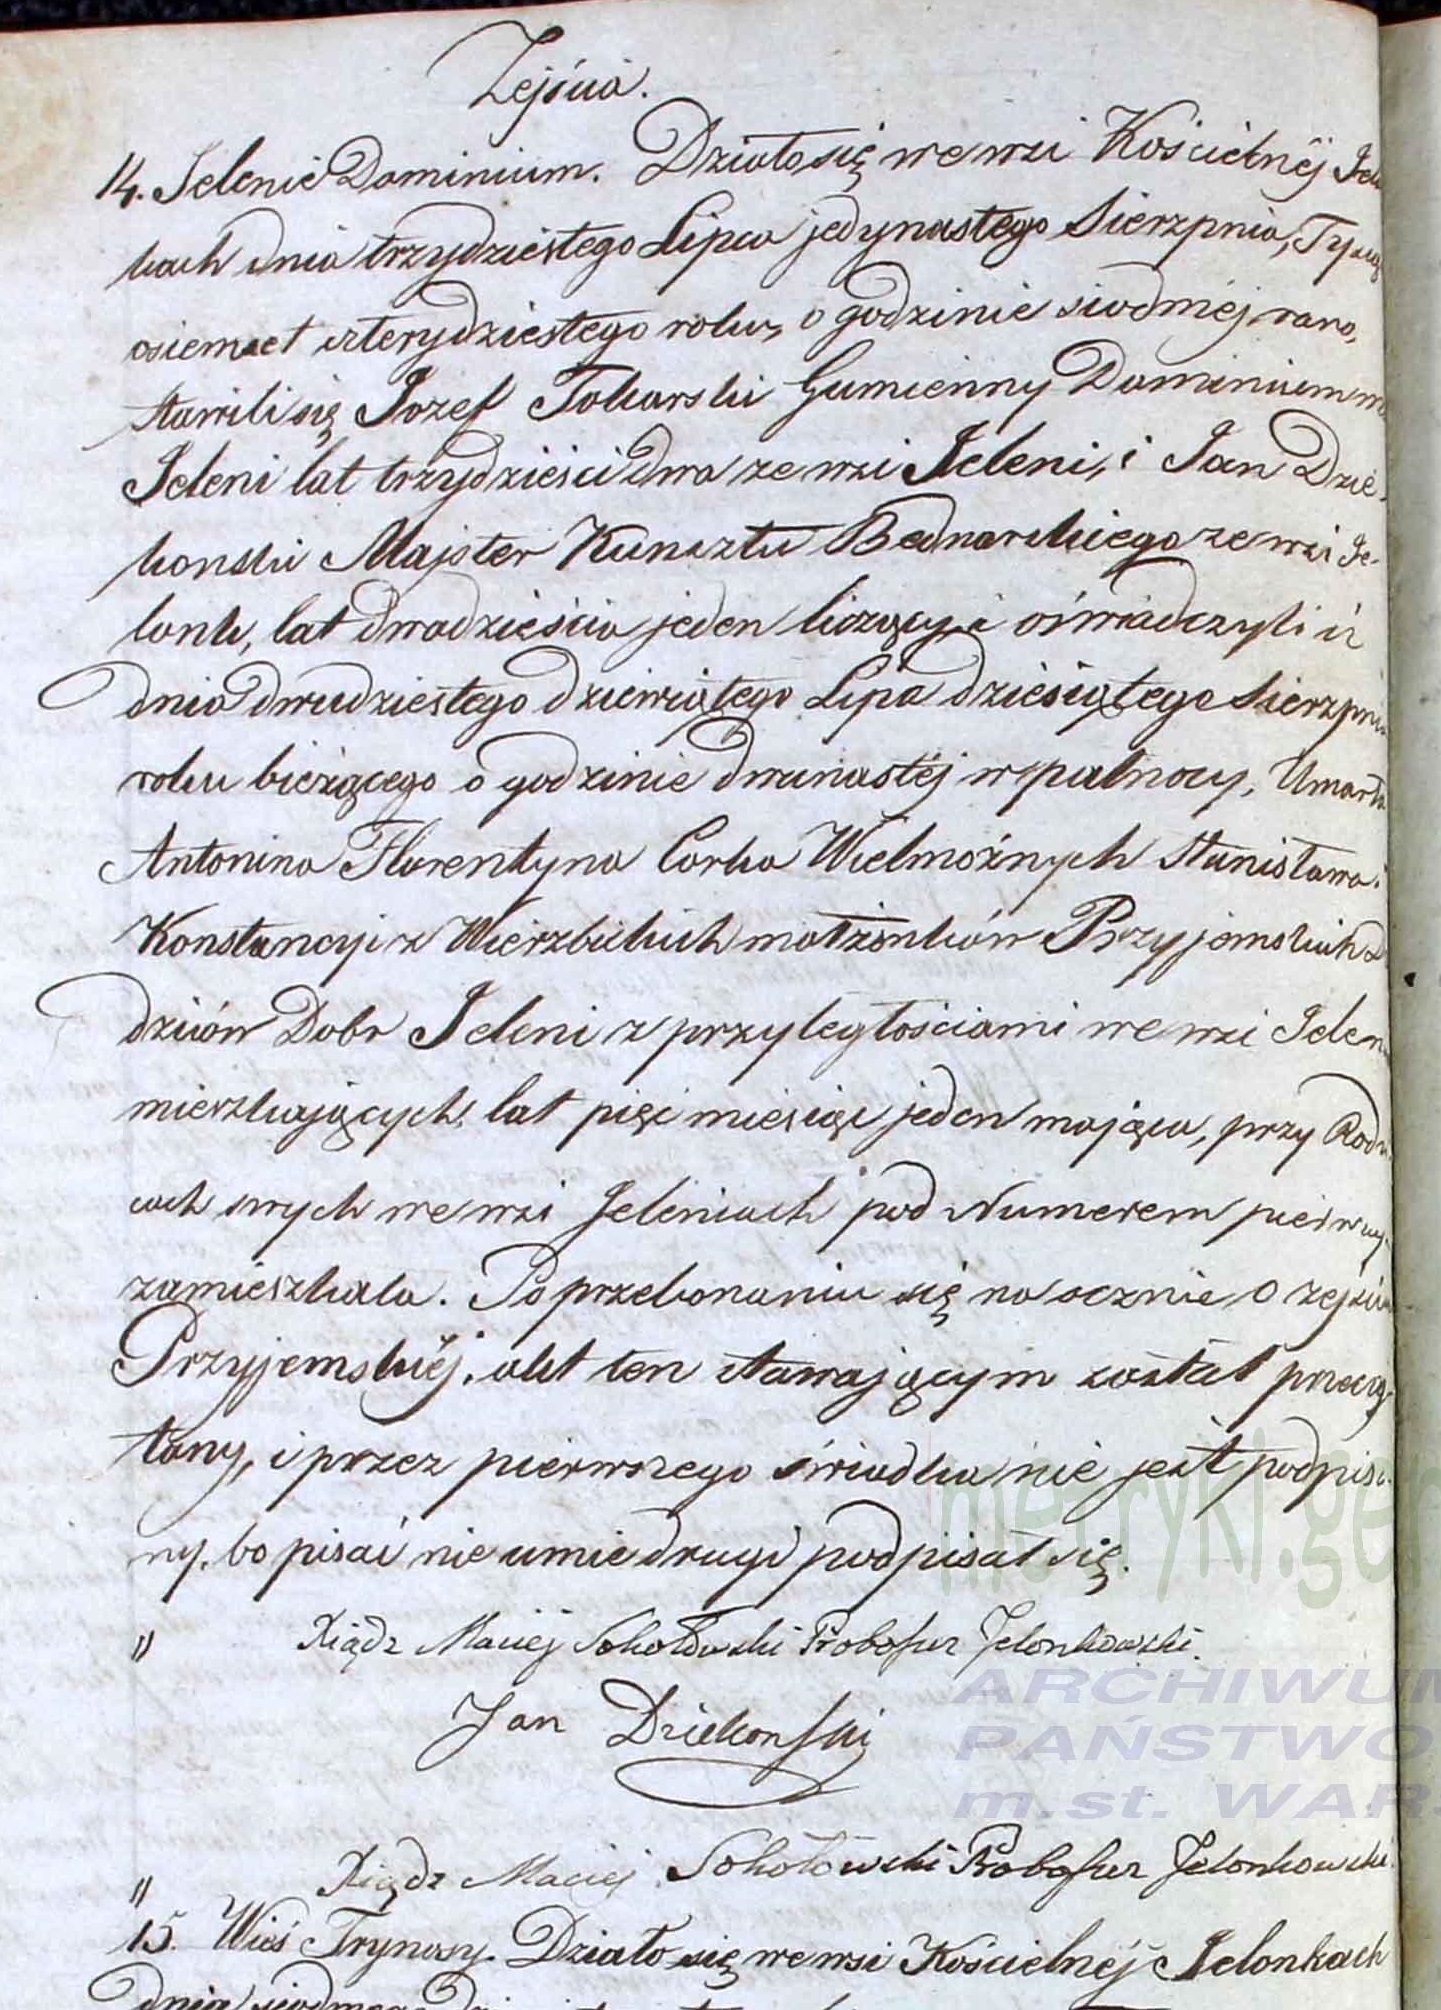 Zejścia.
14. Jelenie Dominium. Działo się we wsi Kościelnéj Jelo
kach dnia trzydziestego Lipca jedynastego Sierpnia, Tysiąc
osiemset czterydziestego roku, o godzinie siodméj rano,
stawili się Jozef Tokarski Gumienny Dominium we
Jeleni lat trzydzieści dwa ze wsi Jeleni, i Jan Dzie-
konski Majster Kunsztu Bednarskiego ze wsi Je-
lonk, lat dwadzieścia jeden liczący i oświadczyli iż
dnia dwudziestego dziewiątego Lipca dziesiątego Sierpnia
roku bieżącego o godzinie dwunastéj w pulnocy, Umarła
Antonina Florentyna Corka Wielmożnych Stanisława i
Konstancyi z Wierzbickich małżonków Przyjemskich
dziców Dobr Jeleni z przyległościami we wsi Jeleni
mieszkających, lat pięć miesiąc jeden mająca, przy Rodzi
cach swych we wsi Jeleniach pod Numerem pierwszy-
zamieszkała. Po przekonaniu się na ocznie o zejściu
Przyjemskiéj. akt ten stawającym został przeczy-
tany, i przez pierwszego świadka nie jest podpisa-
ny, bo pisać nie umie drugi podpisał się.
" Xiądz Maciej Sokołowski Proboszcz Jelonkowski.
Jan Dziekonski
" Xiądz Maciej Sokołowski Proboszcz Jelonkowski.
15. Wieś Trynosy. Działo się we wsi Kościelnéj Jelonkach
dnia siodmego
metryki.gen
ARCHIWUM
PAŃSTWO
m.st. WARS